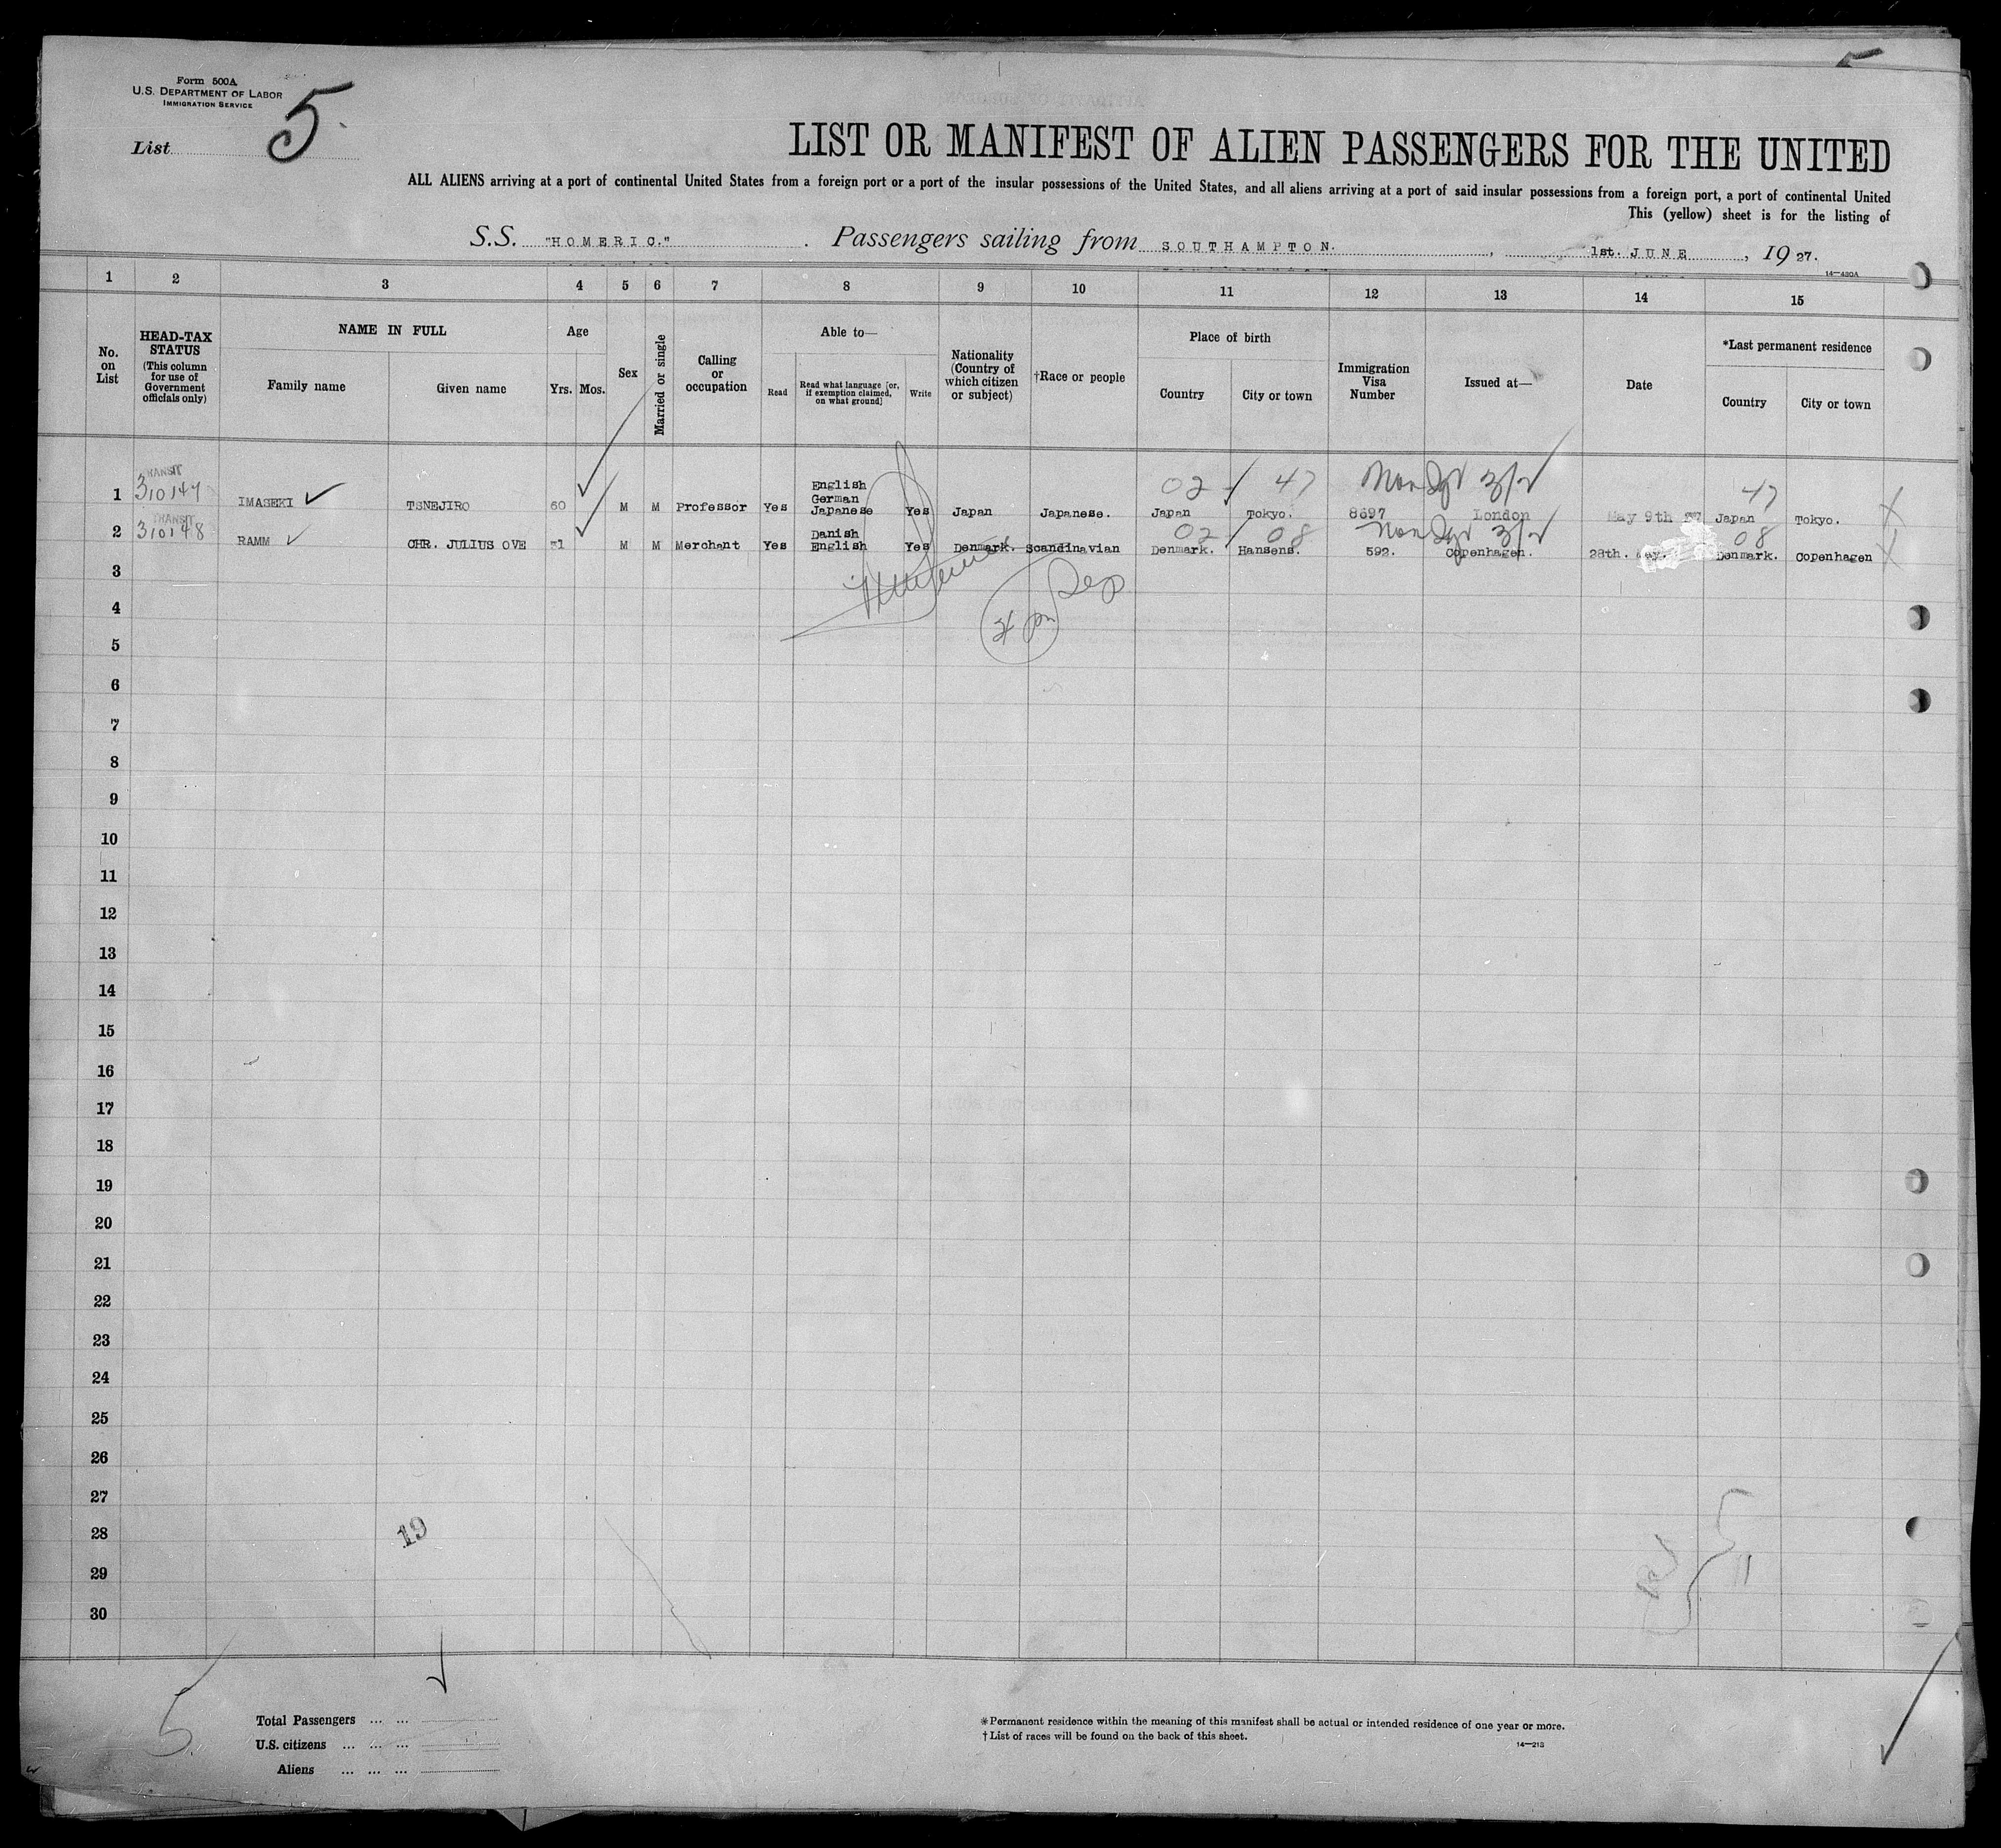 Form 500A
U.S. DEPARTMENT OF LABOR
IMMIGRATION SERVICE
List 5
5
LIST OR MANIFEST OF ALIEN PASSENGERS FOR THE UNITED
ALL ALIENS arriving at a port of continental United States from a foreign port or a port of the insular possessions of the United States, and all aliens arriving at a port of said insular possessions from a foreign port, a port of continental United
This (yellow) sheet is for the listing of
S.S. "HOMERIC." Passengers sailing from SOUTHAMPTON. , 1st. JUNE , 19 27.
14—430A
1 2 3 4 5 6 7 8 9 10 11 12 13 14 15
No. on List
HEAD-TAX STATUS
(This column for use of Government officials only)
NAME IN FULL
Family name
Given name
Age
Yrs. Mos.
Sex
Married or single
Calling or occupation
Able to—
Read
Read what language [or, if exemption claimed, on what ground]
Write
Nationality (Country of which citizen or subject)
†Race or people
Place of birth
Country
City or town
Immigration Visa Number
Issued at—
Date
*Last permanent residence
Country
City or town
TRANSIT
310147
02 47 47
1 IMASEKI TSNEJIRO 60 M M Professor Yes English German Japanese Yes Japan Japanese. Japan Tokyo. 8697 London May 9th 27 Japan Tokyo.
TRANSIT
310148
02 08 08
2 RAMM CHR. JULIUS OVE 51 M M Merchant Yes Danish English Yes Denmark. Scandinavian Denmark. Hansens. 592. Copenhagen. 28th. May. Denmark. Copenhagen
3
4
5
6
7
8
9
10
11
12
13
14
15
16
17
18
19
20
21
22
23
24
25
26
27
28
19
29
11
30
5
Total Passengers ... ...
U.S. citizens ... ... ...
Aliens ... ... ...
*Permanent residence within the meaning of this manifest shall be actual or intended residence of one year or more.
†List of races will be found on the back of this sheet.
14—213